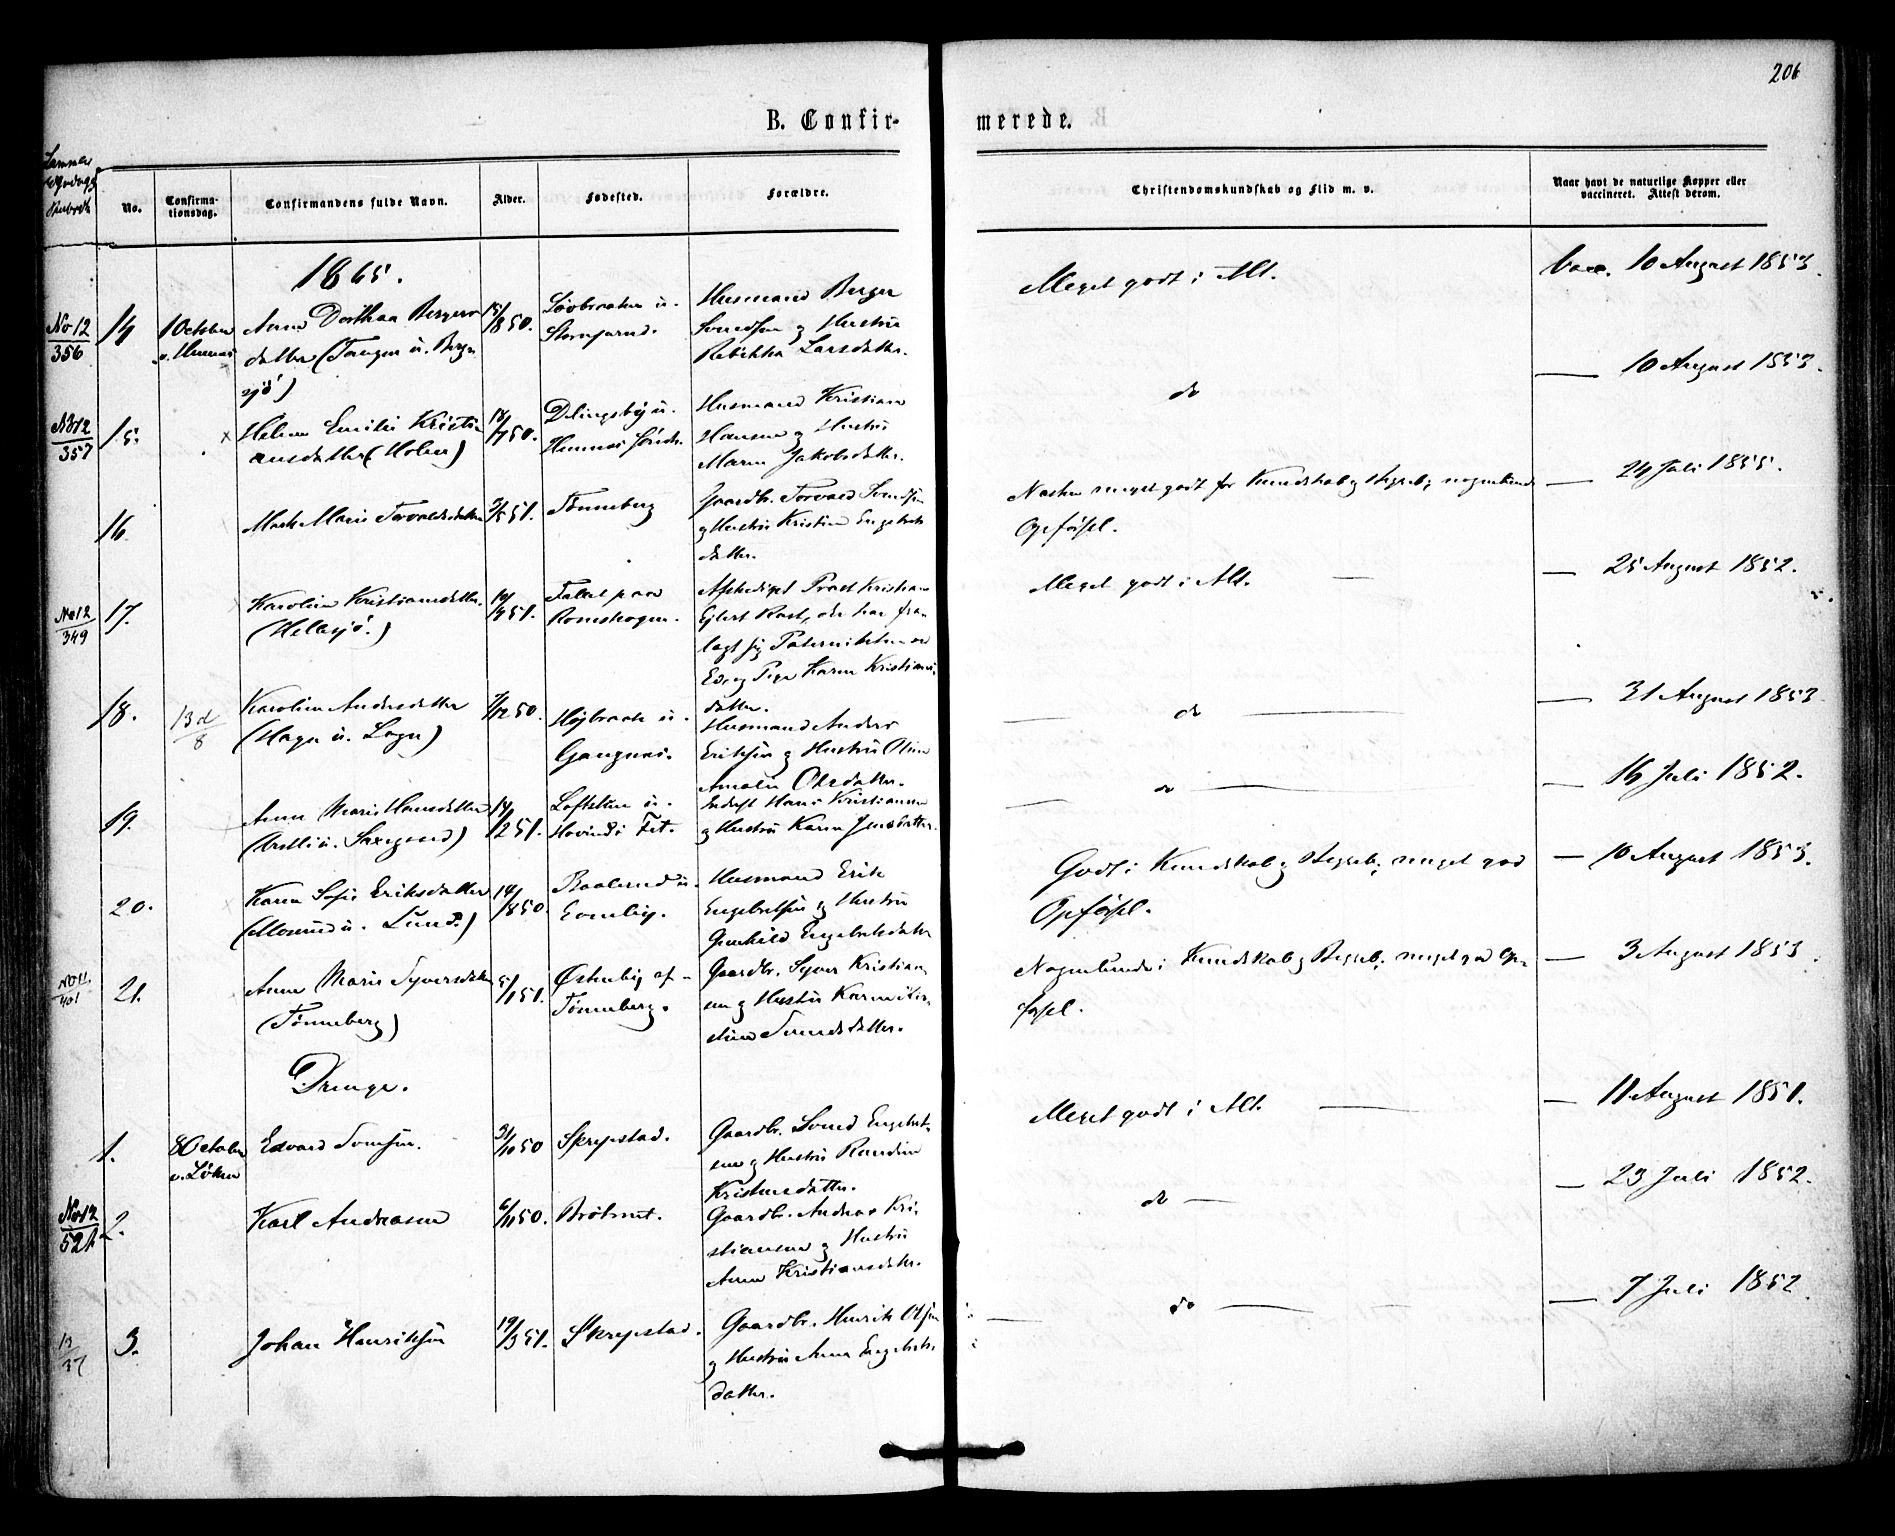 206
B. Confir-
merede.
No.
Confirma-
tionsdag.
Confirmandens fulde Navn.
Alder.
Fødested.
Forældre.
Christendomskundskab og Flid m. v.
Naar havt de naturlige Kopper eller
vaccineret. Attest derom.
1865.
No 12
356
14
1 October
v. Hemnes
Anna Dorthea Bergers
datter (Tangen u. Berg
sjö)
15/8 50.
Husmand Berger
Svendsen og Hustru
Rebekka Larsdatter.
Meget godt i Alt.
Vacc. 10 August 1853.
No 12
357
15.
Helene Emilie Kristi
ansdatter (Holen)
18/7 50.
Husmand Kristian
Hansen og Hustru
Maren Jakobsdatter.
do
— 10 August 1853.
16.
Marthe Marie Torvaldsdatter
2/5 51.
Tønneberg
Gaardbr. Torvald Svendsen
og Hustru Kristine Engebrets
datter.
Næsten meget godt for Kundskab og Begreb; nogenlunde
Opførsel.
— 24 Juli 1855.
No 12
349
17.
Karoline Kristiansdatter.
(Hellesjö.)
Falset paa
Romskogen.
Afskediget Præst Kristian
Ejlert Rost, der har fra
lagt sig Paterniteten ved
Ed, og Pige Karen Kristians
datter.
Meget godt i Alt. —
— 25 August 1852.
18.
13 d/8
Karoline Andersdatter
(Hagen u. Logn)
7/12 50.
Højbraate u.
Gangnes.
Husmand Anders
Eriksen og Hustru Oline
Amalie Olesdatter.
— do —
— 31 August 1853
19.
Anne Marie Hansdatter
14/12 51.
Loftstun u.
Hovind i Fet.
Inderst Hans Kristiansen
og Hustru Karen Jensdatter.
— do —
— 16 Juli 1852.
20.
Karen Sofie Eriksdatter
(Mosund u. Lund)
14/8 50.
Husmand Erik
Engebretsen og Hustru
Gunhild Engebretsdatter
Godt i Kundskab og Begreb; meget god
Opførsel.
— 10 August 1853.
21.
Anne Marie Syversdatter
(Tønneberg)
5/1 51.
Østenby af
Tønneberg.
Gaardbr. Syver Kristian
sen og Hustru Karen Kir
stine Svendsdatter.
Nogenlunde i Kundskab og Begreb; meget god Op-
førsel.
— 3 August 1853.
Drenge.
1.
8 October
v. Løken
Edvard Svendsen.
31/10 50
Skrepstad.
Gaardbr. Svend Engebret-
sen og Hustru Randine
Kristensdatter.
Meget godt i Alt. —
— 11 August 1851.
No 12
521.
2.
Karl Andreasen
6/11 50.
Gaardbr. Andreas Kri-
stiansen og Hustru
Anne Kristiansdatter.
do —
— 23 Juli 1852.
12
37
3.
Johan Henriksen
19/3 51.
Skrepstad.
Gaardbr. Henrik Olsen
og Hustru Anne Engebrets
datter.
— do —
— 7 Juli 1852.